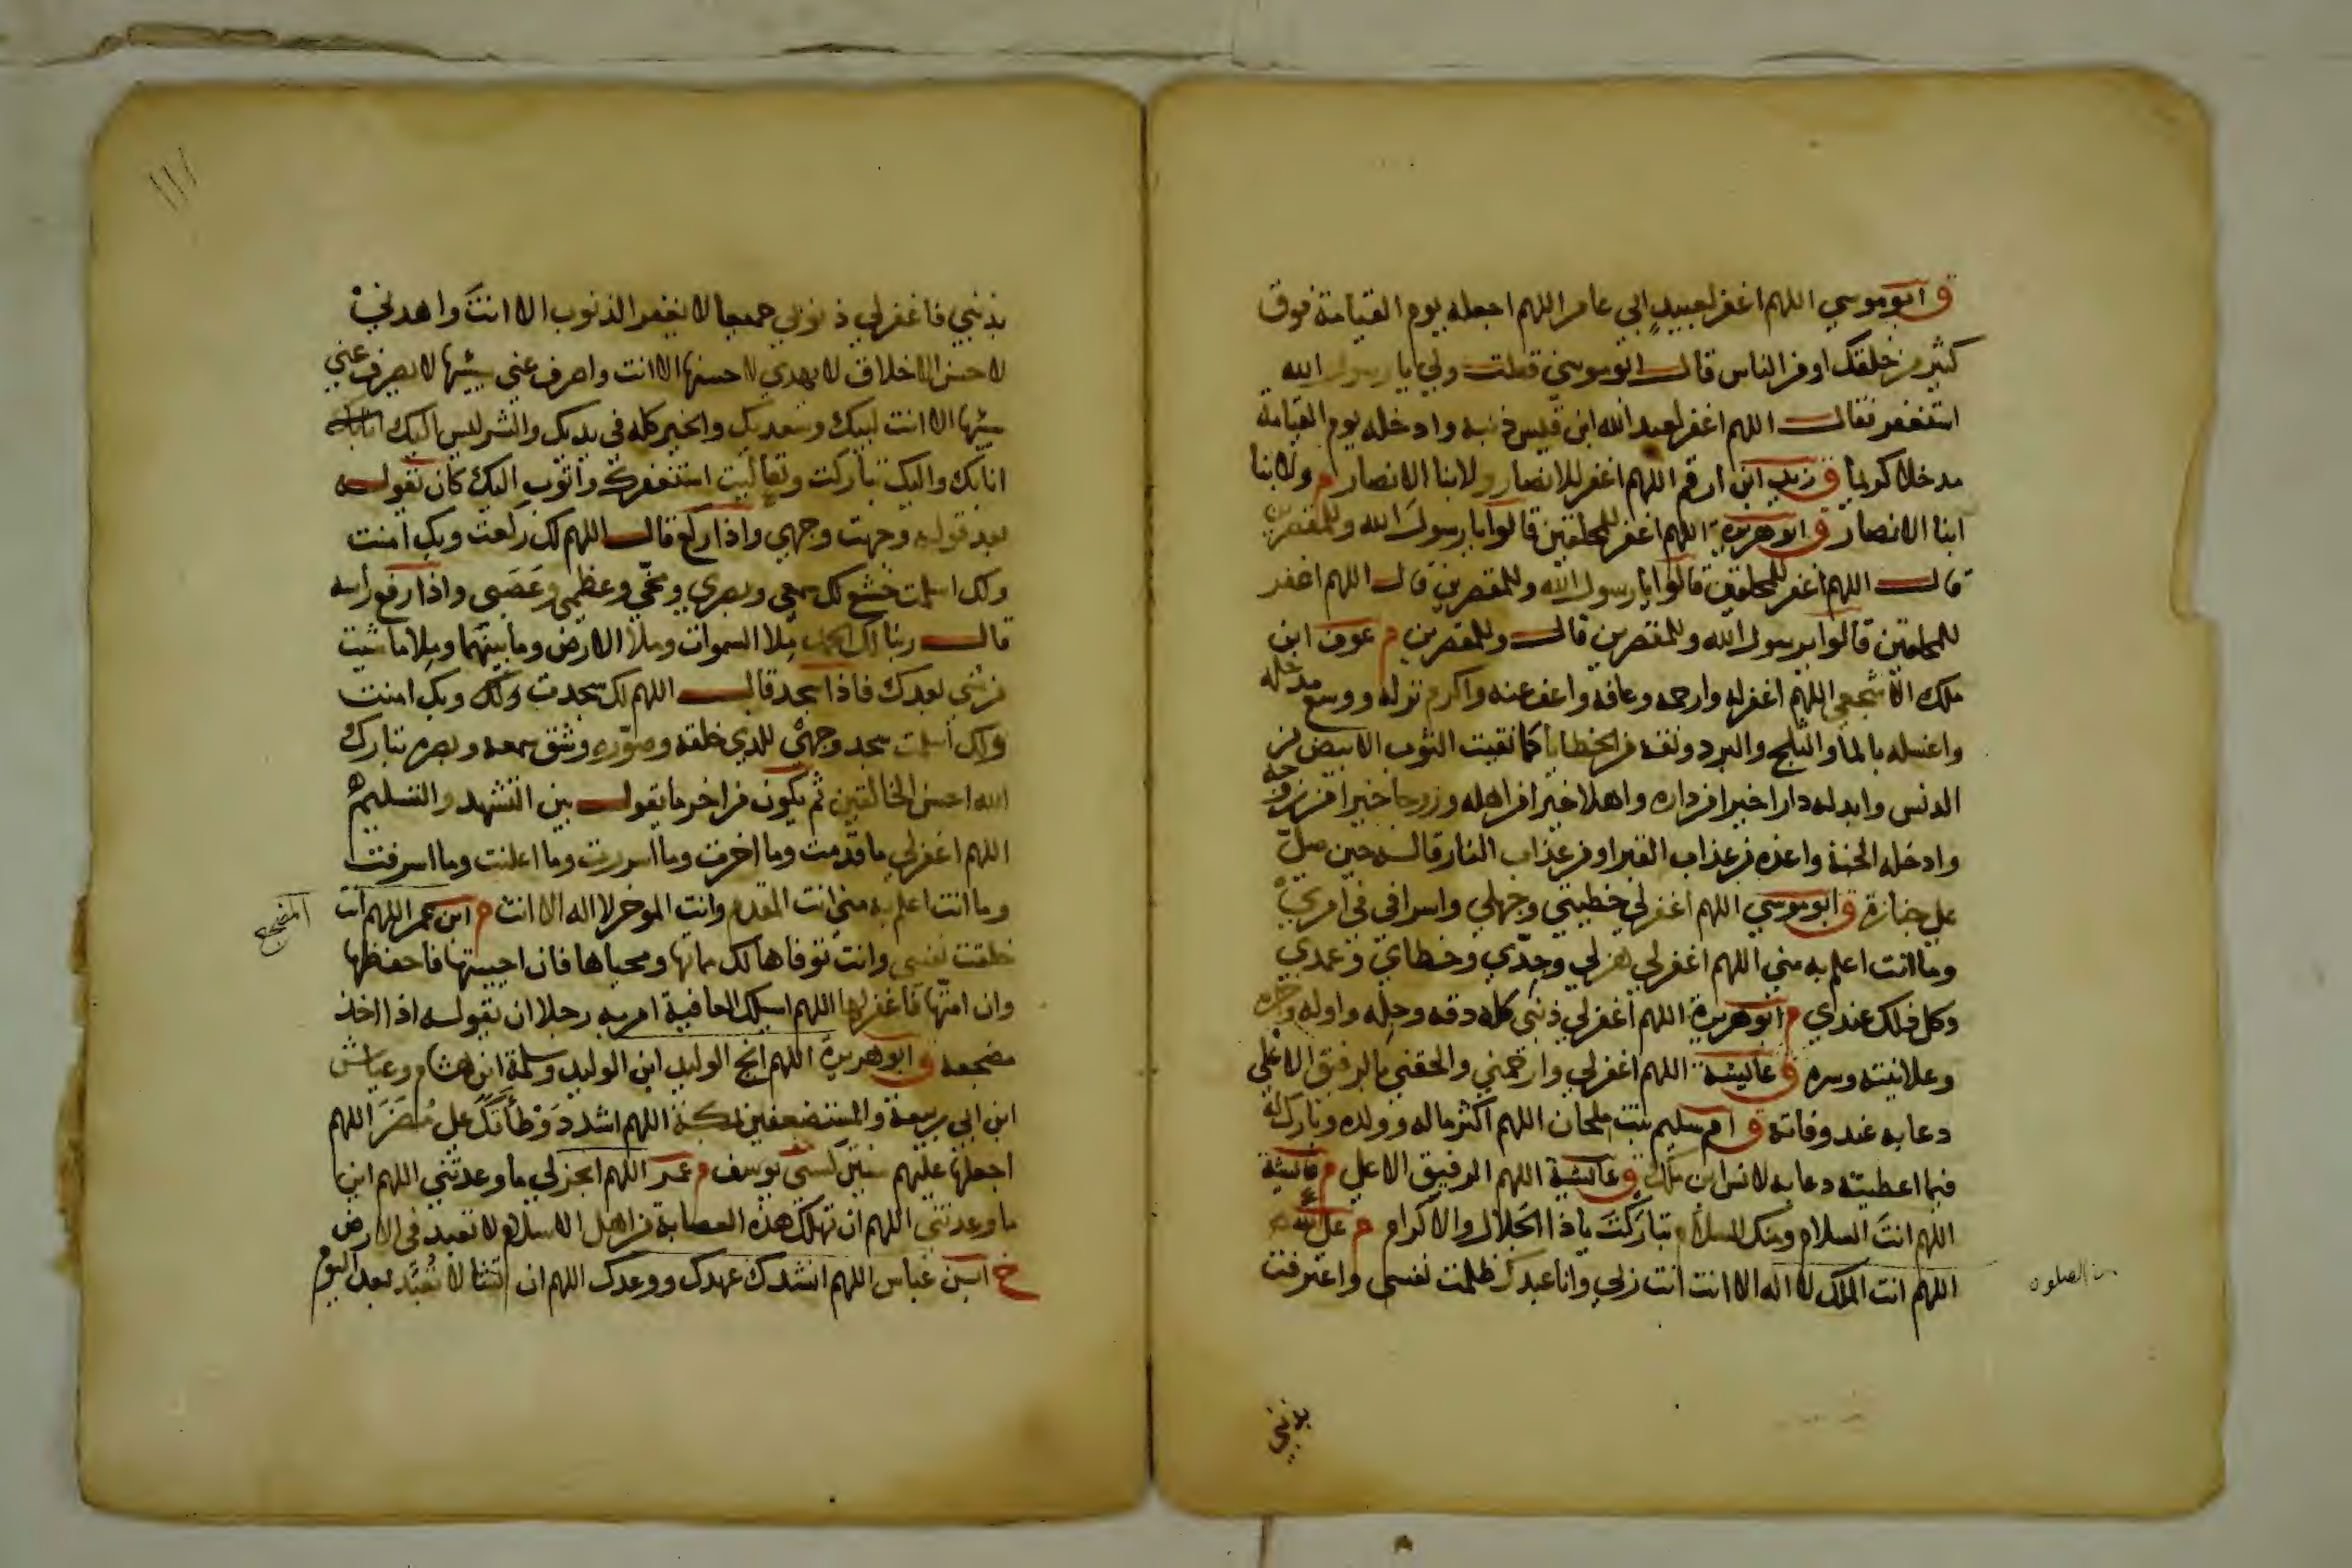 ق ابو موسي اللهم اغفر لعبيد ابي عامر اللهم اجعله يوم القيامة فوق
كثير من خلقك او من الناس قال ابو موسي فقلت ولي يا رسول الله
استغفر فقال اللهم اغفر لعبد الله ابن قيس ذنبه وادخله يوم القيامة
مدخلا كريما ق زيد ابن ارقم اللهم اغفر للانصار ولابنا الانصار م ولابنا
ابنا الانصار ق ابو هريرة اللهم اغفر للمحلقين قالوا يا رسول الله وللمقصرين
قال اللهم اغفر للمحلقين قالوا يا رسول الله وللمقصرين قال اللهم اغفر
للمحلقين قالوا يرسول الله وللمقصرين قال وللمقصرين م عوف ابن
ملك الاشجعي اللهم اغفر له وارحمه وعافه واعف عنه واكرم نزله ووسع مدخله
واغسله بالما والثلج والبرد ونقه من الخطايا كما نقيت الثوب الابيض من
الدنس وابدله دارا خيرا من داره واهلا خيرا من اهله وزوجا خيرا من زوجه
وادخله الجنة واعذه من عذاب القبر او من عذاب النار قاله حين صلّ
علي جنازة ق ابو موسي اللهم اغفر لي خطيتي وجهلي واسرافي في امري
وما انت اعلم به مني اللهم اغفر لي هزلي وجدّي وخطاي وعمدي
وكل ذلك عندي م ابو هريرة اللهم اغفر لي ذنبي كله دقه وجله واوله واخره
وعلانيته وسره ق عايشة اللهم اغفر لي وارحمني والحقني بالرفيق الاعلي
دعا به عند وفاته ق ام سليم بنت ملحان اللهم اكثر ماله وولده وبارك له
فيما اعطيته دعا به لانس ابن ملك ق عايشة اللهم الرفيق الاعلي م عايشة
اللهم انت السلام ومنك السلام تباركت ياذا الجلال والاكرام م علي
اللهم انت الملك لا اله الا انت انت ربي وانا عبدك ظلمت نفسي واعترفت
الصلوة
بذنبي
١١١
بذنبي فاغفر لي ذنوبي جميعا لا يغفر الذنوب الا انت واهدني
لاحسن الاخلاق لا يهدي لاحسنها الا انت واصرف عني سيئها لا يصرف عني
سيئها الا انت لبيك وسعديك والخير كله في يديك والشر ليس اليك
انا بك واليك تباركت وتعاليت استغفرك واتوب اليك كان يقوله
بعد قوله وجهت وجهي واذا ركع قال اللهم لك ركعت وبك امنت
ولك اسلمت خشع لك سمعي وبصري ومخّي وعظمي وعَصَبي واذا رفع رأسه
قال ربنا لك الحمد ملا السموات وملا الارض وما بينهما وملا ما شيت
من شي بعدك فاذا سجد قال اللهم لك سجدت وبك امنت
ولك اسلمت سجد وجهي للذي خلقه وصوّره وشق سمعه وبصره تبارك
الله احسن الخالقين ثم يكون من اخر ما يقول بين التشهد والتسليم
اللهم اغفر لي ما قدّمت وما اخرت وما اسررت وما اعلنت وما اسرفت
وما انت اعلم به مني انت المقدم وانت الموخر لا اله الا انت م ابن عمر اللهم انت
خلقت نفسي وانت توفاها لك مماتها ومحياها فان احييتها فاحفظها
وان امتّها فاغفر لها اللهم اسلك العافية امر به رجلا ان يقوله اذا اخذ
مضجعه ق ابو هريرة اللهم انج الوليد ابن الوليد وسلمة ابن هشام وعياش
ابن ابي ربيعة والمستضعفين بمكة اللهم اشدد وَطْأتكَ علي مُضَرَ اللهم
اجعلها عليهم سنين كسني يوسف م عمر اللهم انجز لي ما وعدتني اللهم اين
ما وعدتني اللهم ان تهلك هذه العصابة من اهل الاسلام لا تعبد في الارض
خ ابن عباس اللهم انشدك عهدك ووعدك اللهم ان تشا لا تُعبَد بعد اليوم